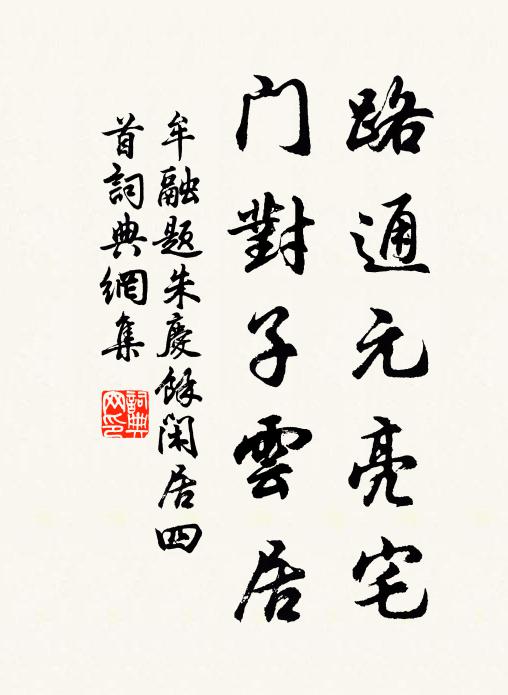 路通元亮宅
门對子雲居
牟融题朱慶餘闲居四
首詞典網集
詞典
网印